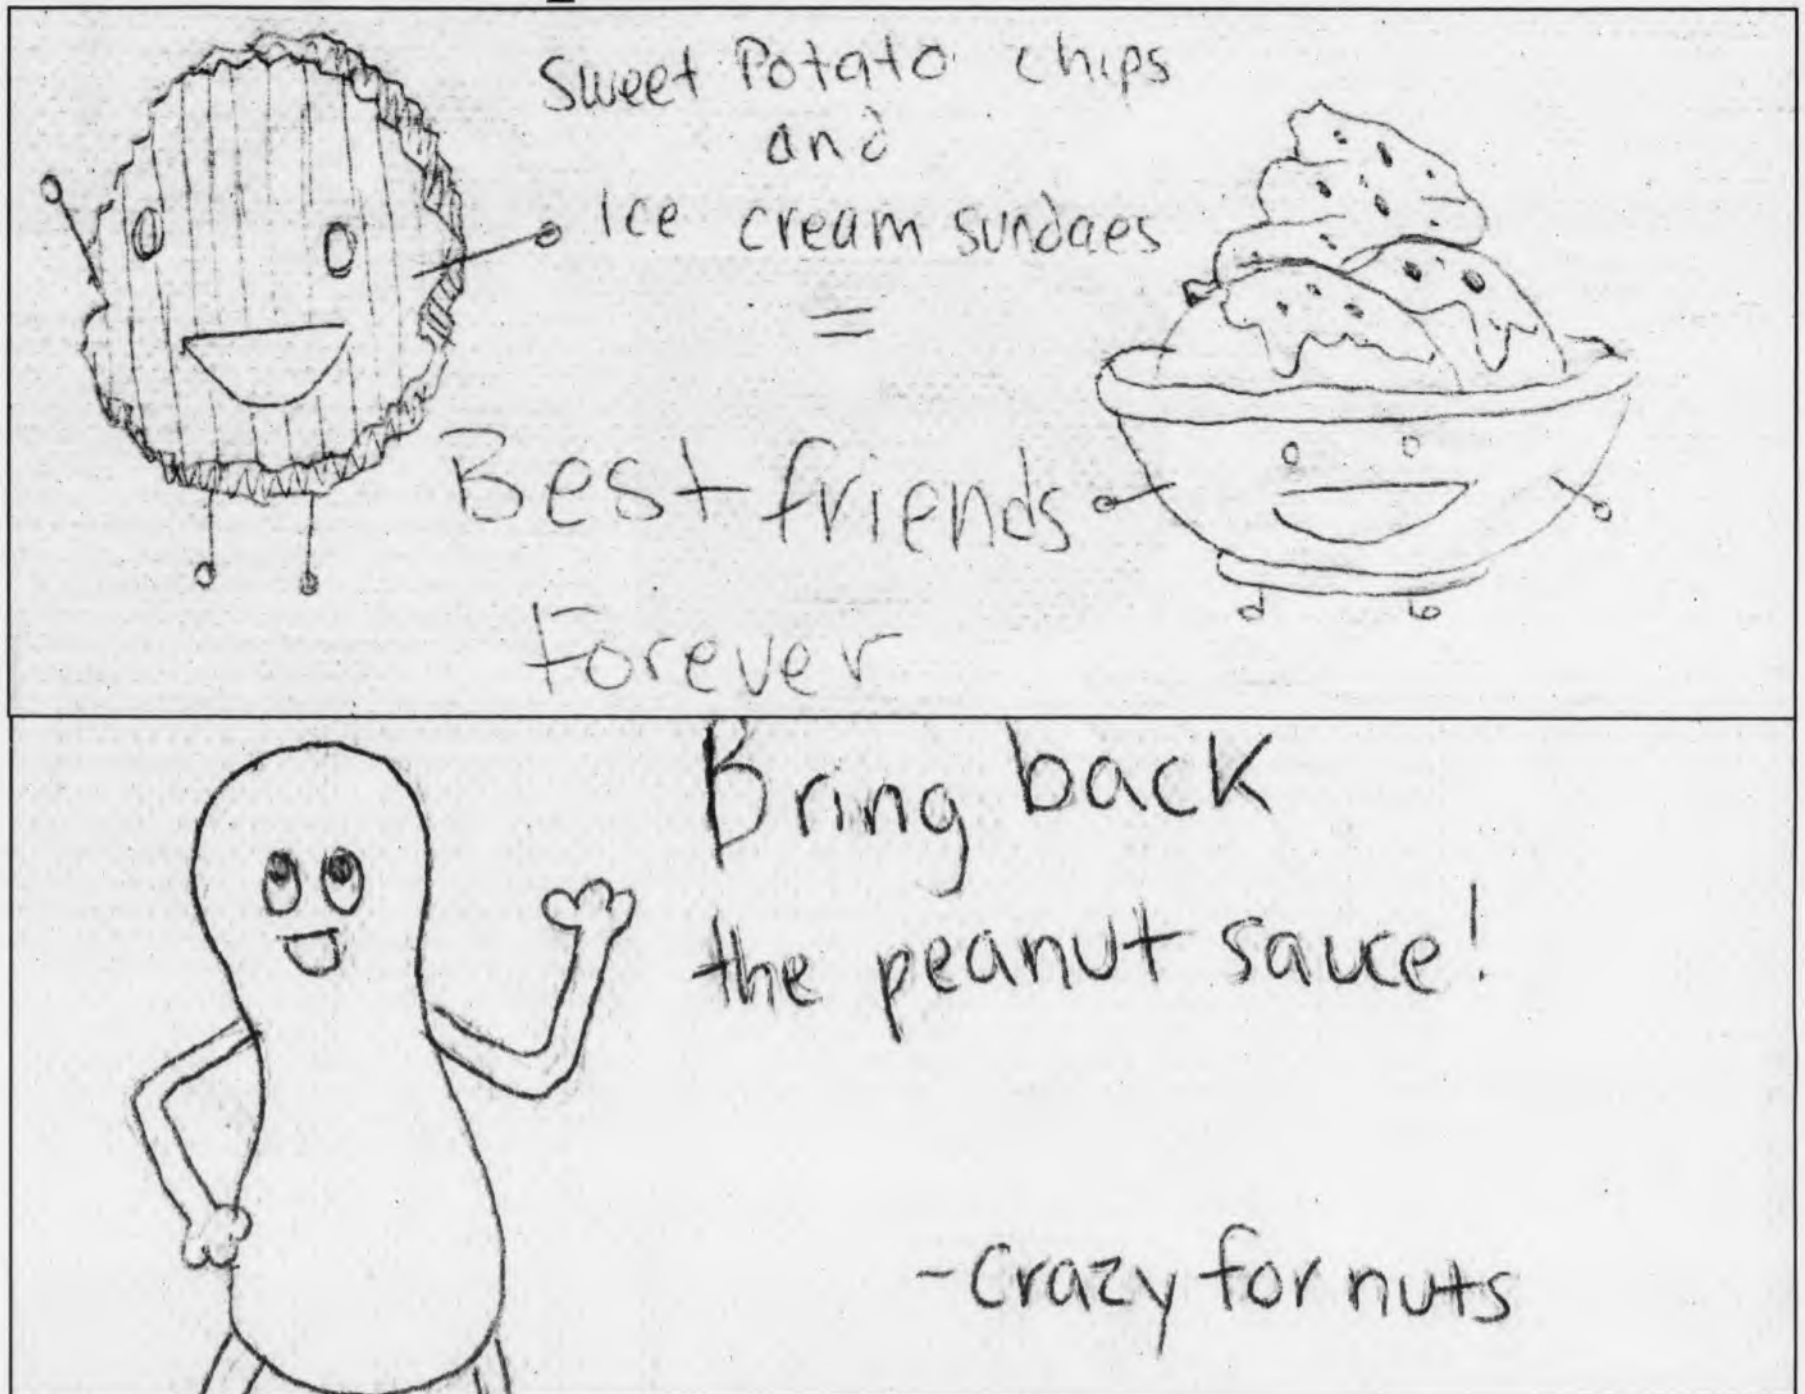 Sweet Potato chips
and
Ice cream sundaes
=
Best friends
Forever
Bring back
the peanut sauce!
-Crazy for nuts